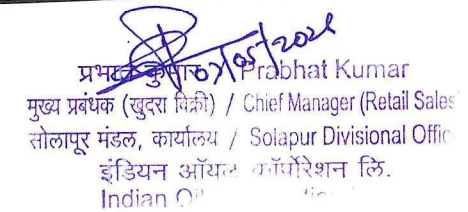 प्रभात कुमार / Prabhat Kumar
मुख्य प्रबंधक (खुदरा विक्री) / Chief Manager (Retail Sales
सोलापूर मंडल, कार्यालय / Solapur Divisional Offic
इंडियन ऑयल कॉर्पोरेशन लि.
Indian Oil